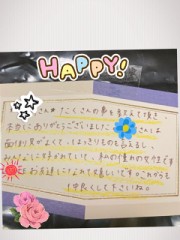 HAPPY!
さん🌼たくさんの事を教えて頂き
本当にありがとうございました さんは
面倒見がよくて、はっきりものも言えるし、
みんなに好かれていて、私の憧れの女性です
お友達になれて嬉しいです これからも
仲良くして下さいね!!